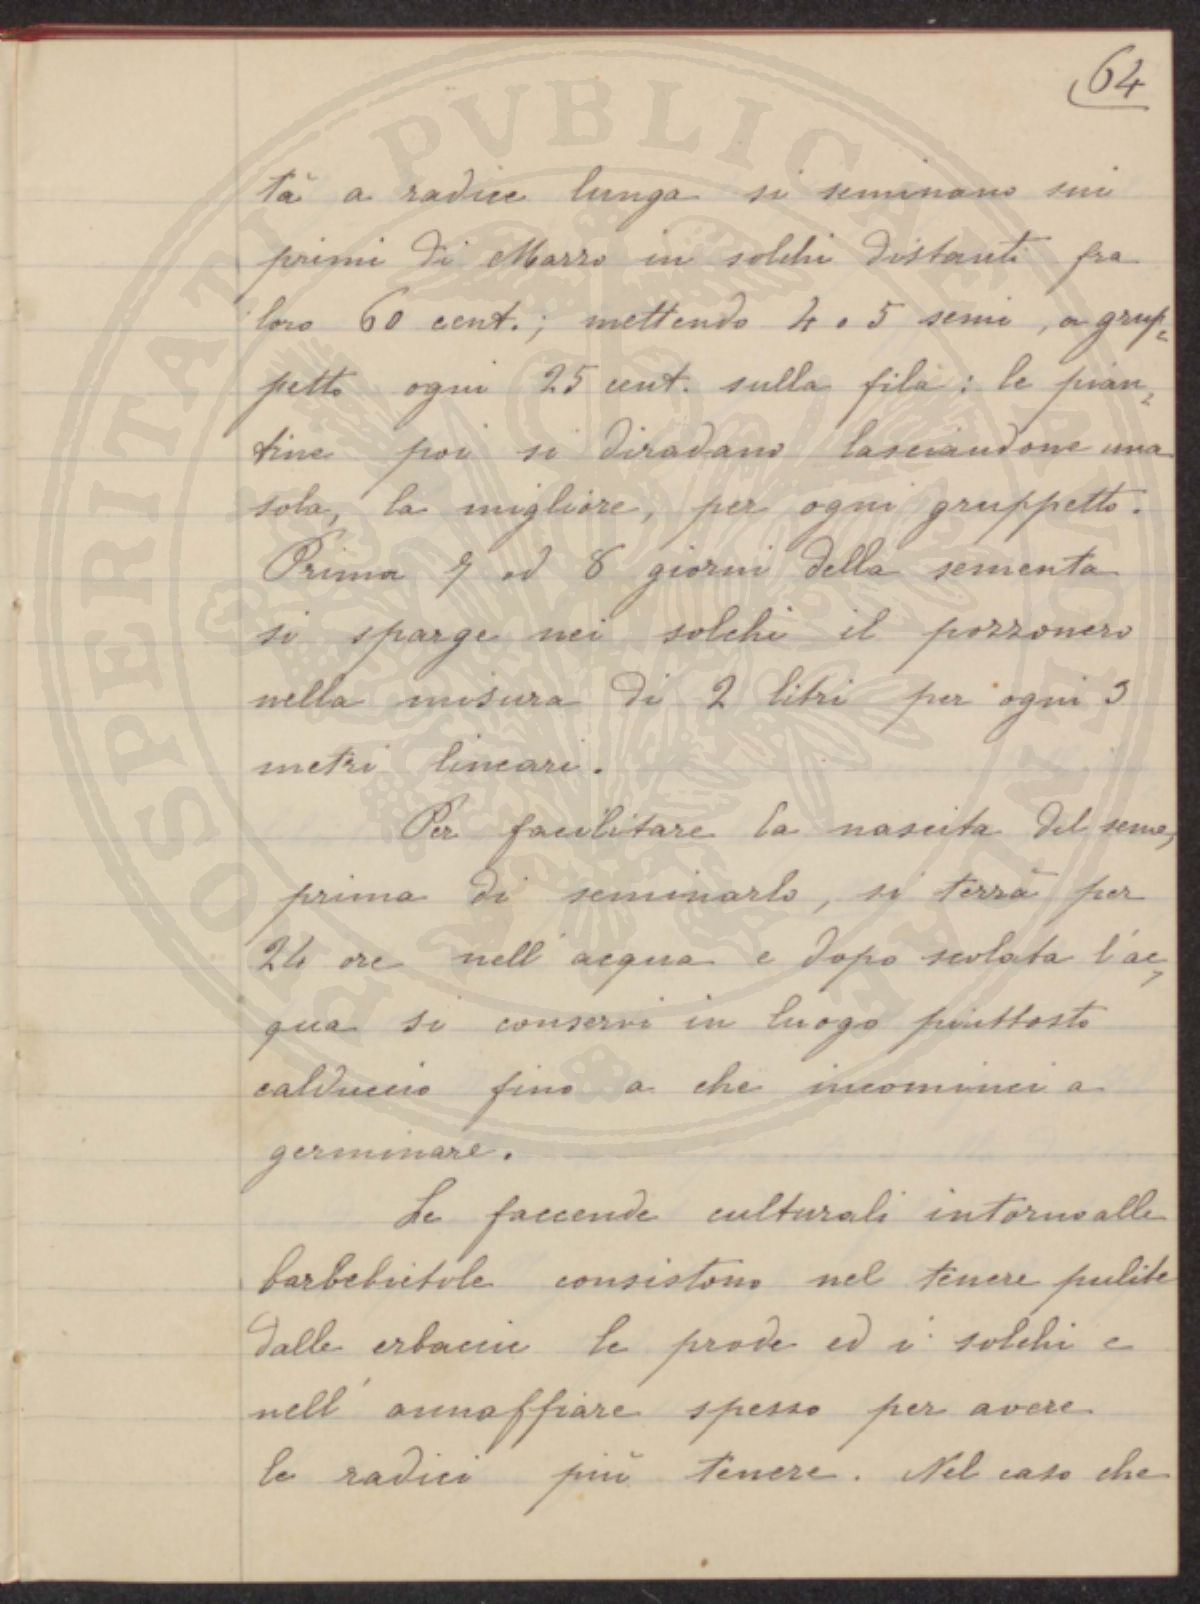 64
tà a radice lunga si seminano sui
primi di Marzo in solchi distanti fra
loro 60 cent.; mettendo 4 o 5 semi, a grup=
petto ogni 25 cent. sulla fila: le pian=
tine poi si diradano lasciandone una
sola, la migliore, per ogni gruppetto.
Prima 7 od 8 giorni della sementa
si sparge nei solchi il pozzonero
nella misura di 2 litri per ogni 3
metri lineari.
Per facilitare la nascita del seme,
prima di seminarlo, si terrà per
24 ore nell'acqua e dopo scolata l'ac=
qua si conservi in luogo piuttosto
calduccio fino a che incominci a
germinare.
Le faccende culturali intorno alle
barbebietole consistono nel tenere pulite
dalle erbaccie le prode ed i solchi e
nell'annaffiare spesso per avere
le radici più tenere. Nel caso che
PROSPERITATI PVBLICAE AVGENDAE